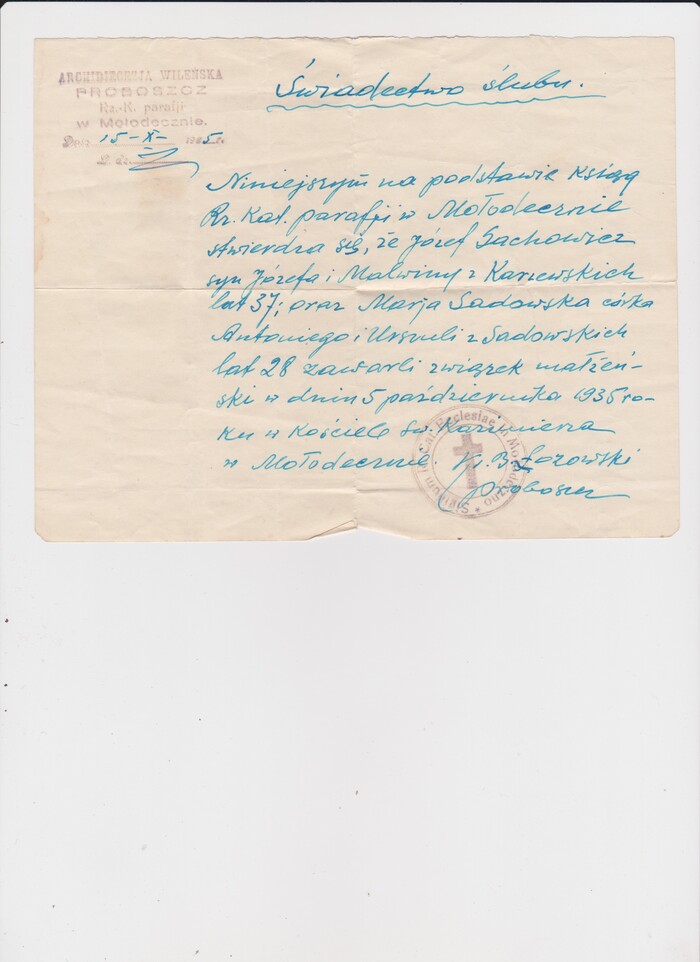 ARCHIDIECEZJA WILEŃSKA
PROBOSZCZ
Rz.-K. parafji
w Mołodecznie.
Dnia 15-X- 1935 r.
L. dz.
Świadectwo ślubu.
Niniejszym na podstawie ksiąg
Rz. Kat. parafji w Mołodecznie
stwierdza się, że Józef Sachowicz
syn Józefa i Malwiny z Karzewskich
lat 37; oraz Marja Sadowska córka
Antoniego i Urszuli z Sadowskich
lat 28 zawarli związek małżeń-
ski w dniu 5 października 1935 ro-
ku w Kościele św. Kazimierza
w Mołodecznie. Ks. B. Łozowski
Proboszcz
Cat. Ecclesiae in Mołodeczno